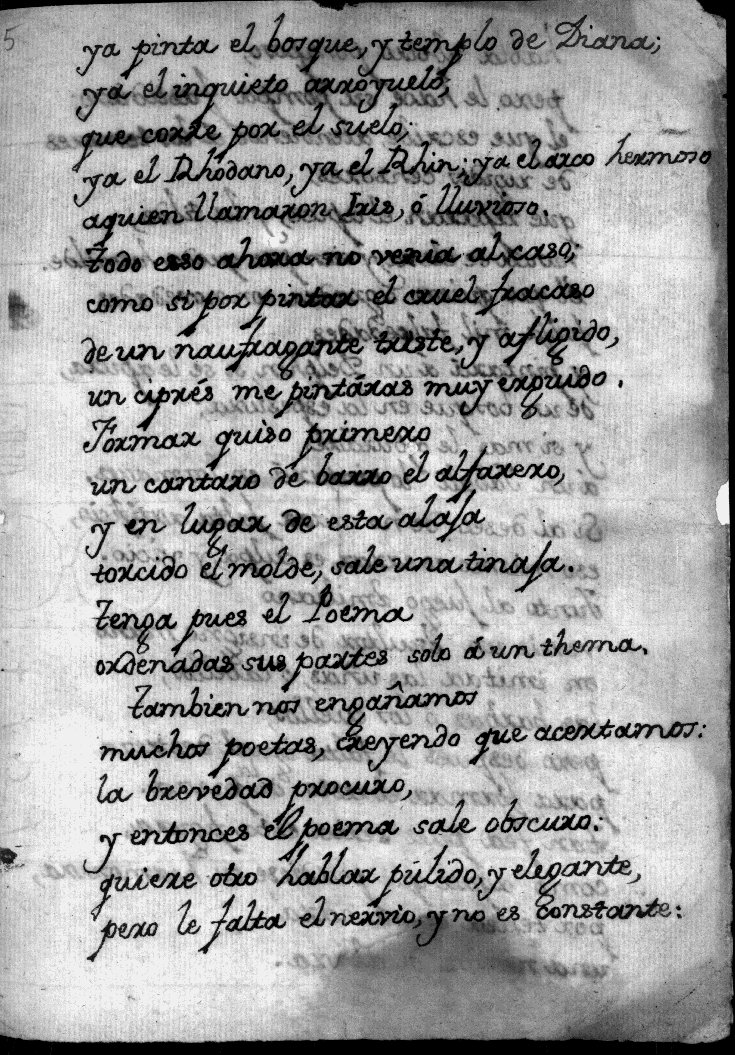 5
ya pinta el bosque, y templo de Diana;
ya el inquieto arroyuelo,
que corre por el suelo;
ya el Rhódano, ya el Rhin; ya el arco hermoso
aquien llamaron Iris, ó lluvioso.
todo esso ahora no venia al caso;
como si por pintar el cruel fracaso
de un naufragante triste, y afligido,
un ciprés me pintáras muy erguido.
Formar quiso primero
un cantaro de barro el alfarero,
y en lugar de esta alaja
torcido el molde, sale una tinaja.
tenga pues el Poema
ordenadas sus partes solo á un thema.
tambien nos engañamos
muchos poetas, creyendo que acertamos:
la brevedad procuro,
y entonces el poema sale obscuro:
quiere otro hablar púlido, y elegante,
pero le falta el nervio, y no es constante: